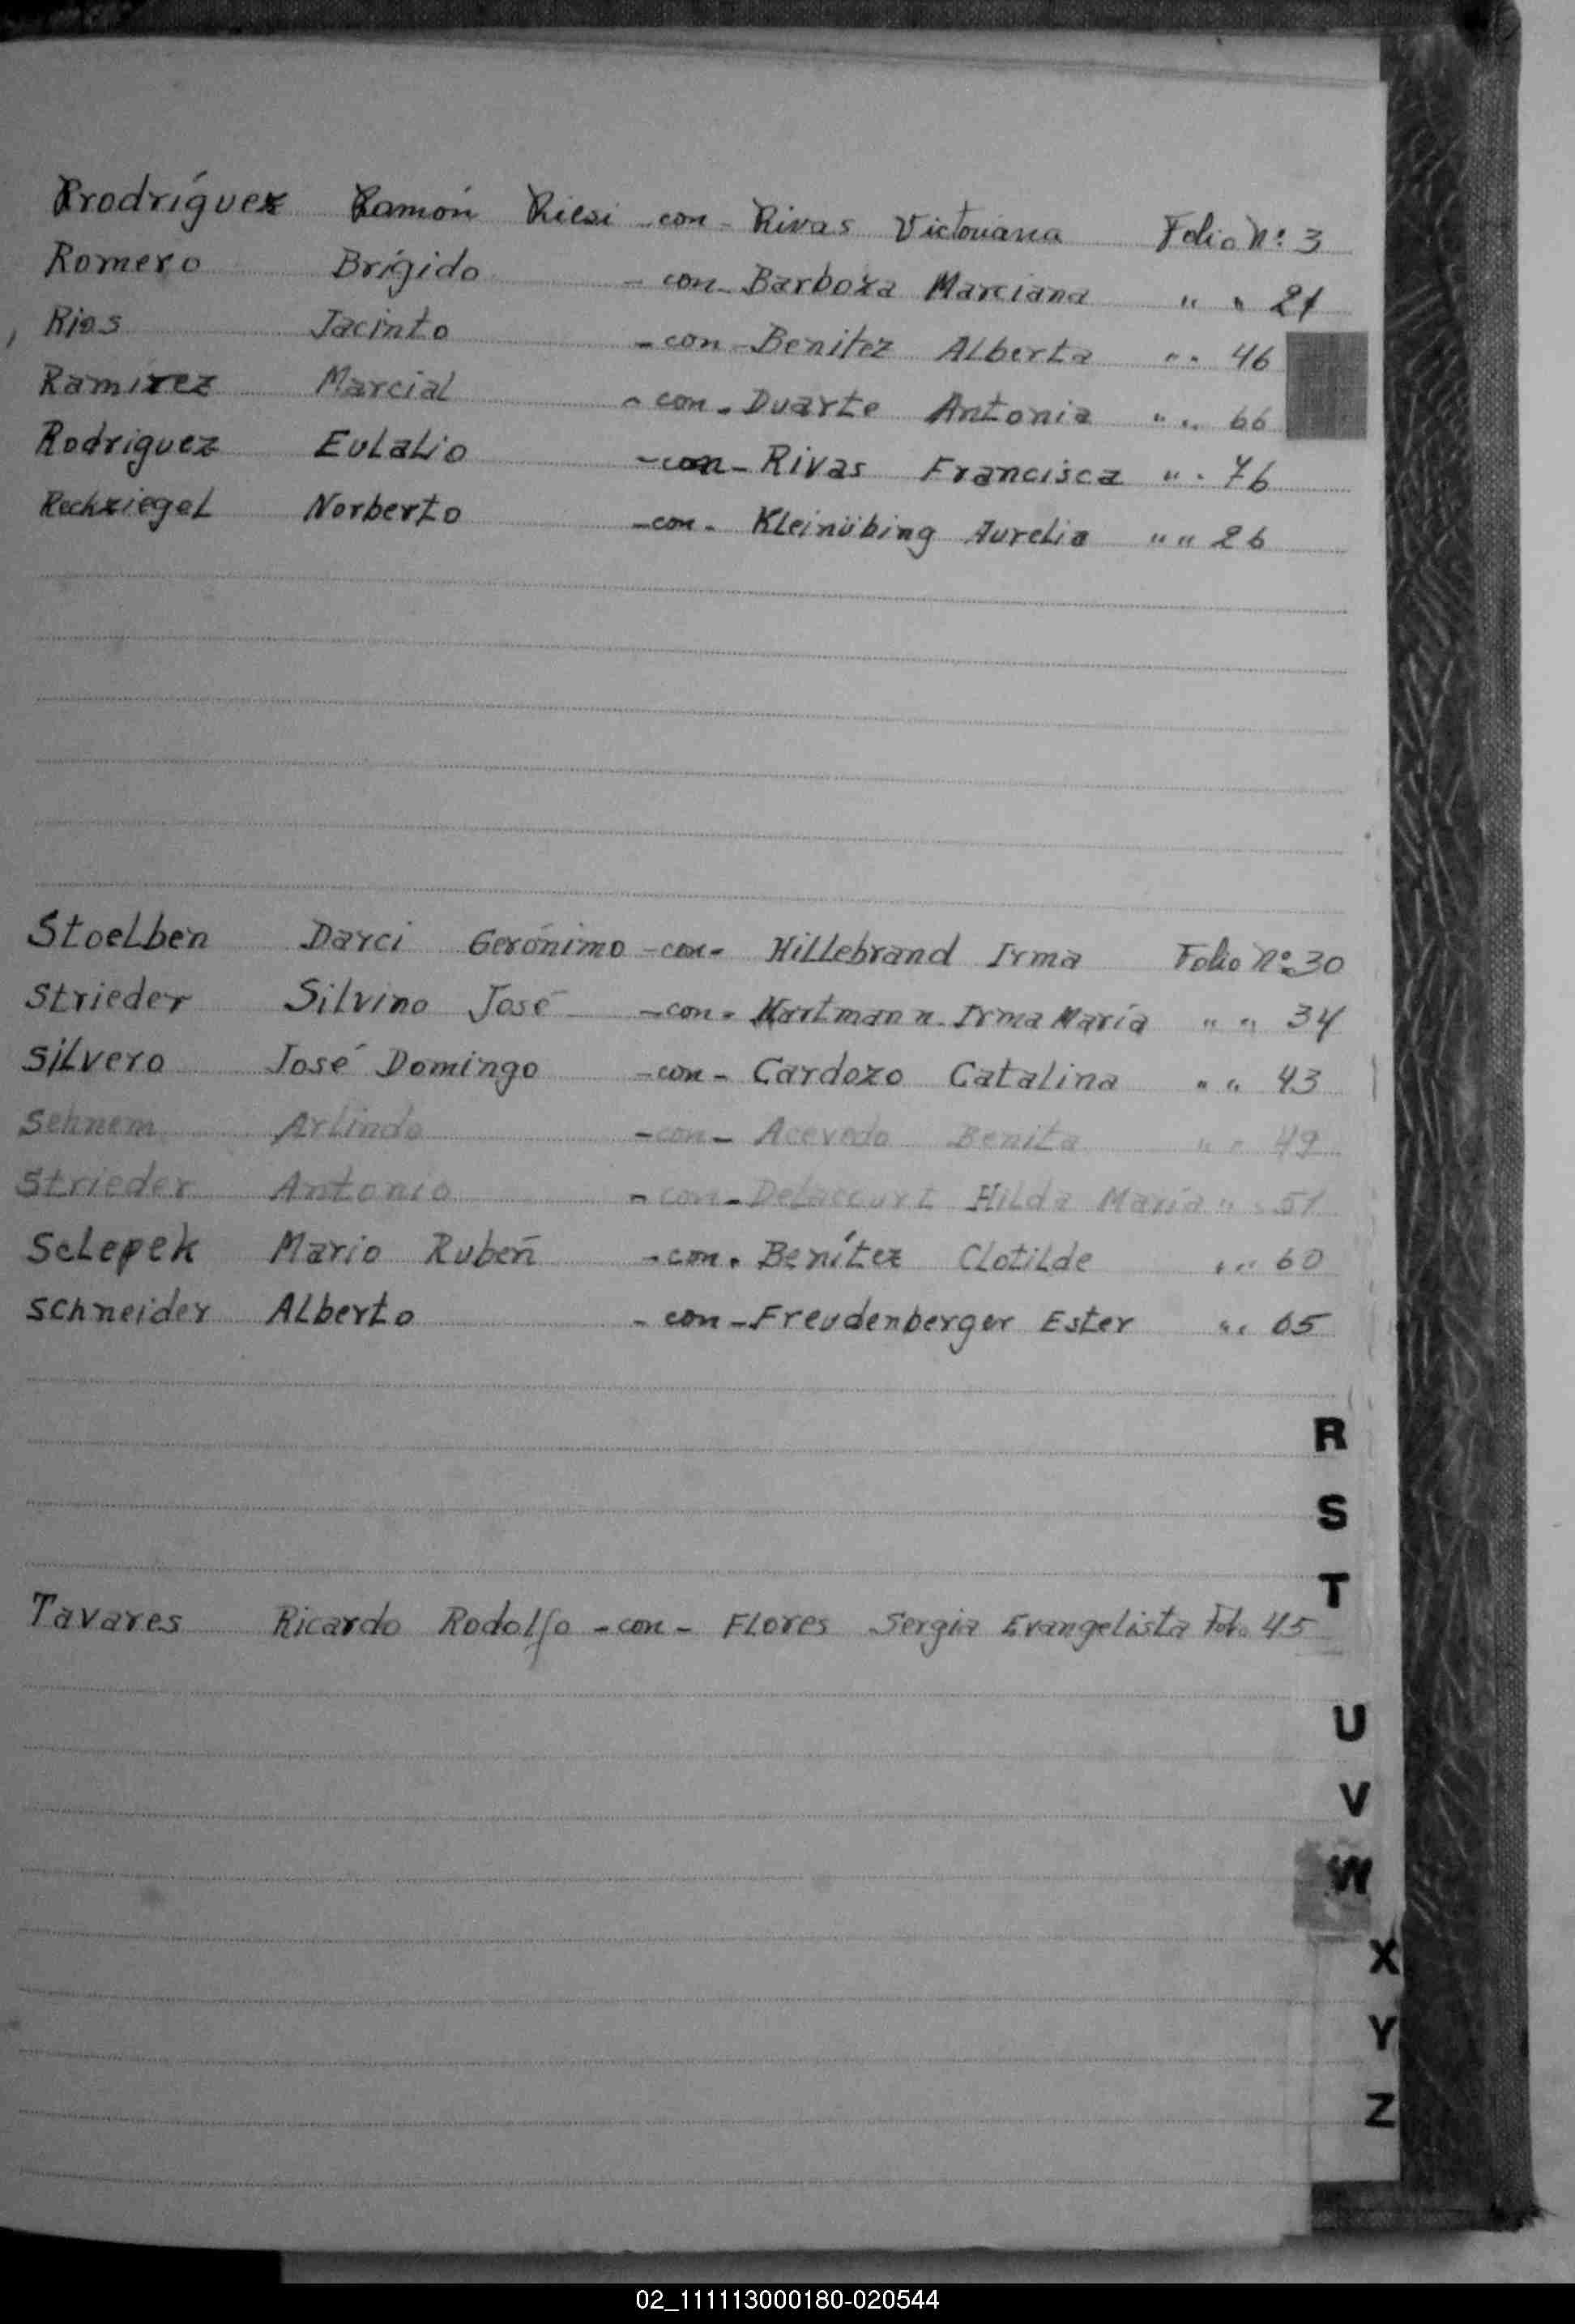 Rrodríguez Ramón Riesi - con - Rivas Victoriana Folio Nº: 3
Romero Brígido - con - Barboza Marciana " " 21
Rios Jacinto - con - Benitez Alberta " " 46
Ramírez Marcial - con - Duarte Antonia " " 66
Rodriguez Eulalio - con - Rivas Francisca " " 76
Rechziegel Norberto - con - Kleinübing Aurelia " " 26
Stoelben Darci Gerónimo - con - Hillebrand Irma Folio Nº 30
Strieder Silvino José - con - Hartmann Irma María " " 34
Silvero José Domingo - con - Cardozo Catalina " " 43
Sehnem Arlindo - con - Acevedo Benita " " 49
Strieder Antonio - con - Delaccurt Hilda María " " 51
Sclepek Mario Rubeń - con - Benítez Clotilde " " 60
Schneider Alberto - con - Freudenberger Ester " " 65
R
S
T
Tavares Ricardo Rodolfo - con - Flores Sergia Evangelista Fol. 45
U
V
W
X
Y
Z
02_111113000180-020544